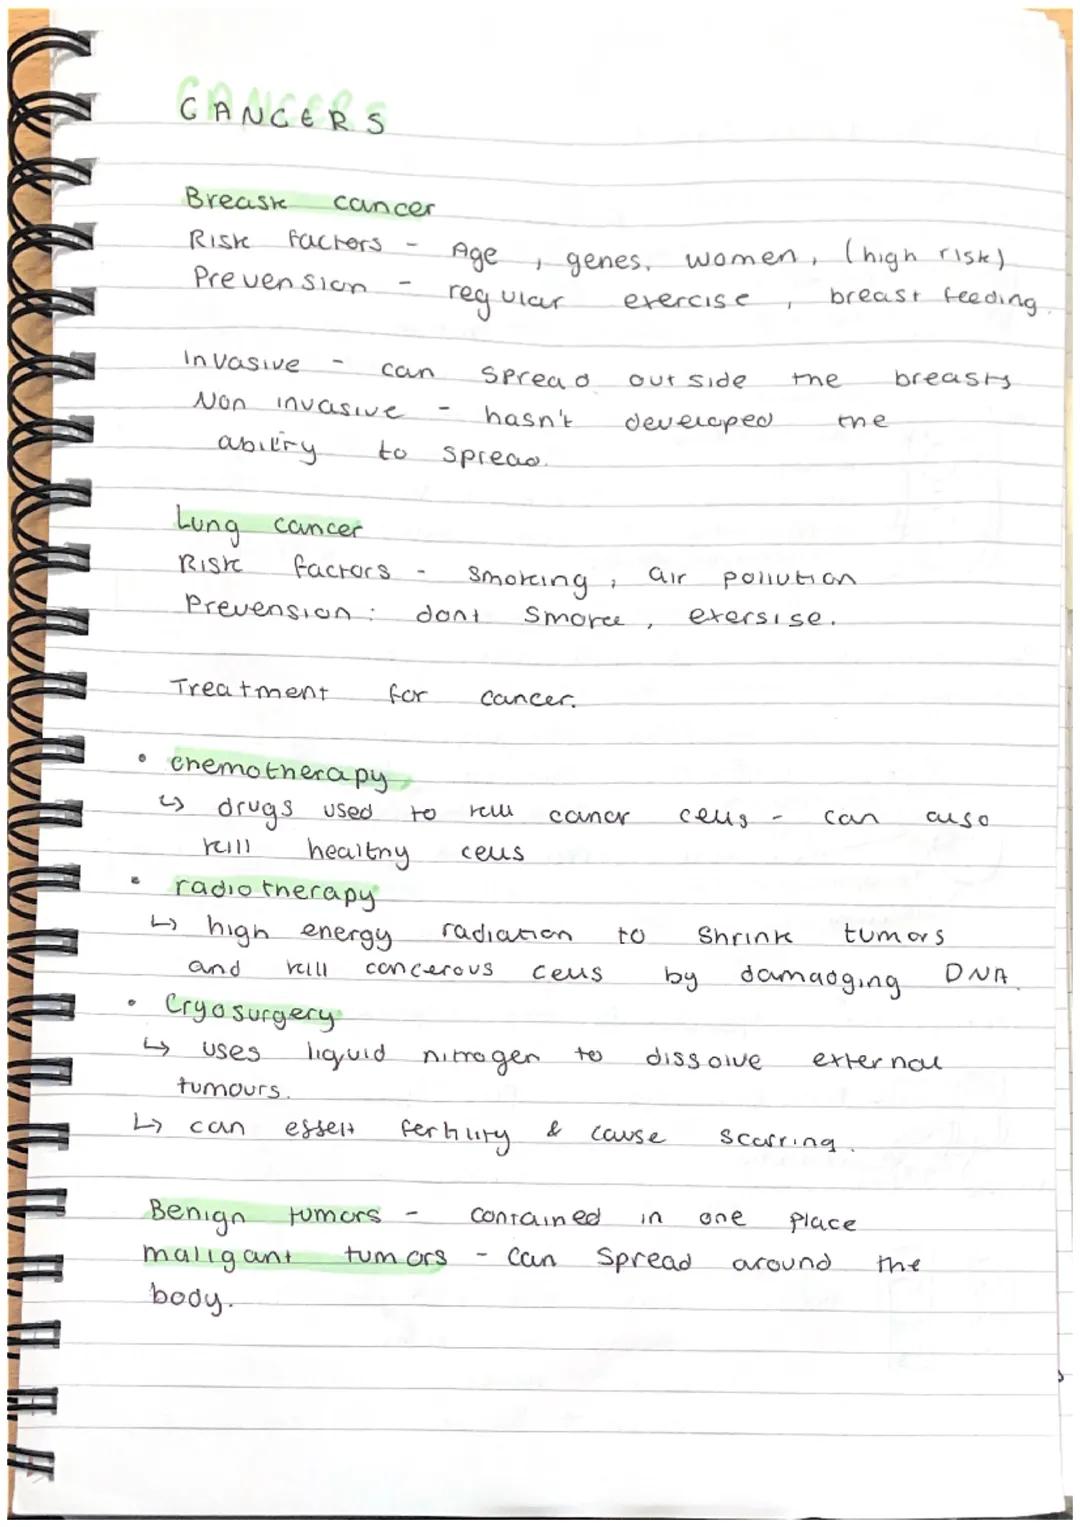 CANCERS
Breast cancer
Risk factors - Age, genes, women, (high risk)
Prevension - regular exercise, breast feeding.
Invasive - can spread outside the breasts
Non invasive - hasn't developed the
ability to spread.
Lung cancer
Risk factors - smoking, air pollution
Prevension: dont smoke, exersise.
Treatment for cancer.
• chemotherapy
↳ drugs used to kill cancr cells - can also
kill healthy cells
• radiotherapy
↳ high energy radiation to shrink tumors
and kill cancerous cells by damadging DNA.
• Cryosurgery
↳ uses liquid nitrogen to dissolve external
tumours.
↳ can fertility & cause scarring.
Benign tumors - contained in one place
maligant tumors - can spread around the
body.